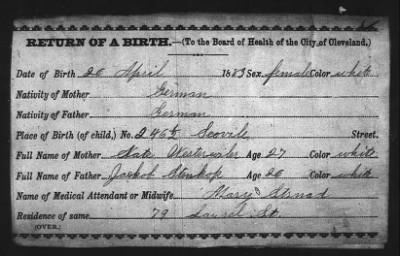 RETURN OF A BIRTH.—(To the Board of Health of the City of Cleveland.)
Date of Birth 20 April 1883 Sex, female Color white
Nativity of Mother German
Nativity of Father German
Place of Birth (of child,) No. Scovile Street.
Full Name of Mother Kate Age 27 Color white
Full Name of Father Jacob Age Color white
Name of Medical Attendant or Midwife, Mary
Residence of same 79 Laurel St.
(OVER.)